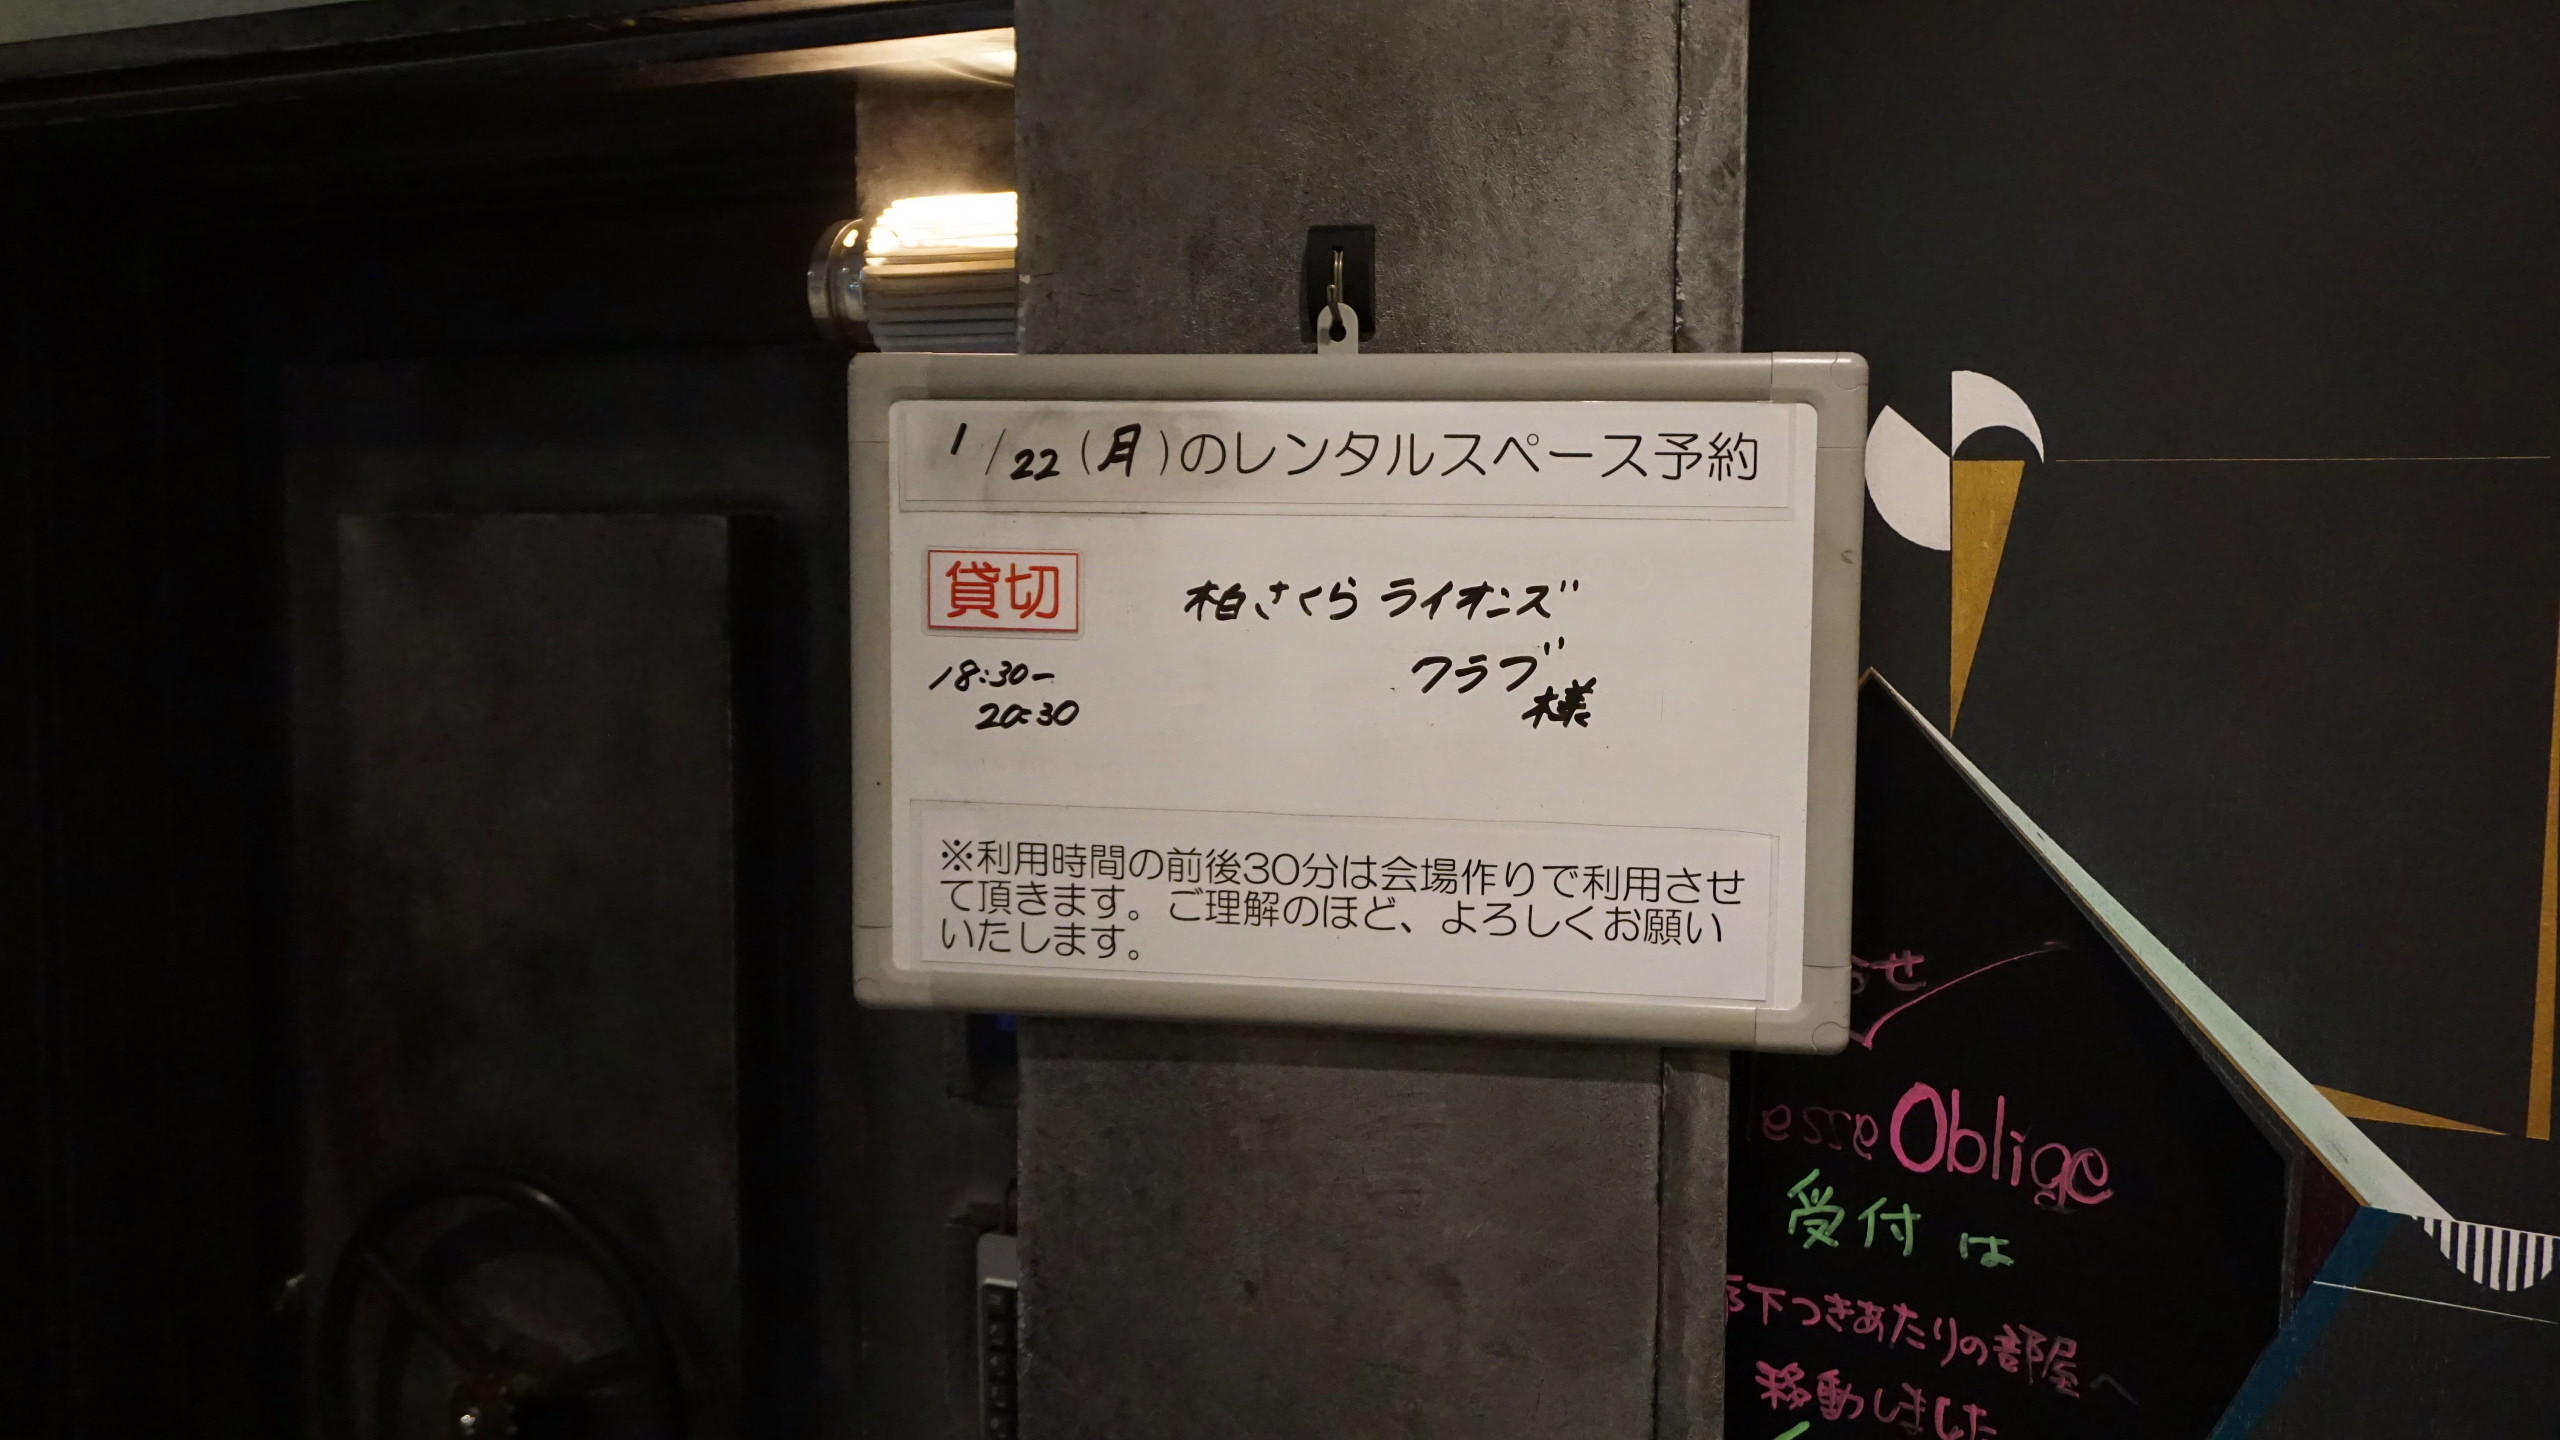 1/22(月)のレンタルスペース予約
貸切
柏さくらライオンズ
クラブ
様
18:30-
20:30
※利用時間の前後30分は会場作りで利用させ
て頂きます。ご理解のほど、よろしくお願い
いたします。
せ
esse Oblige
受付は
下つきあたりの部屋へ
移動しました